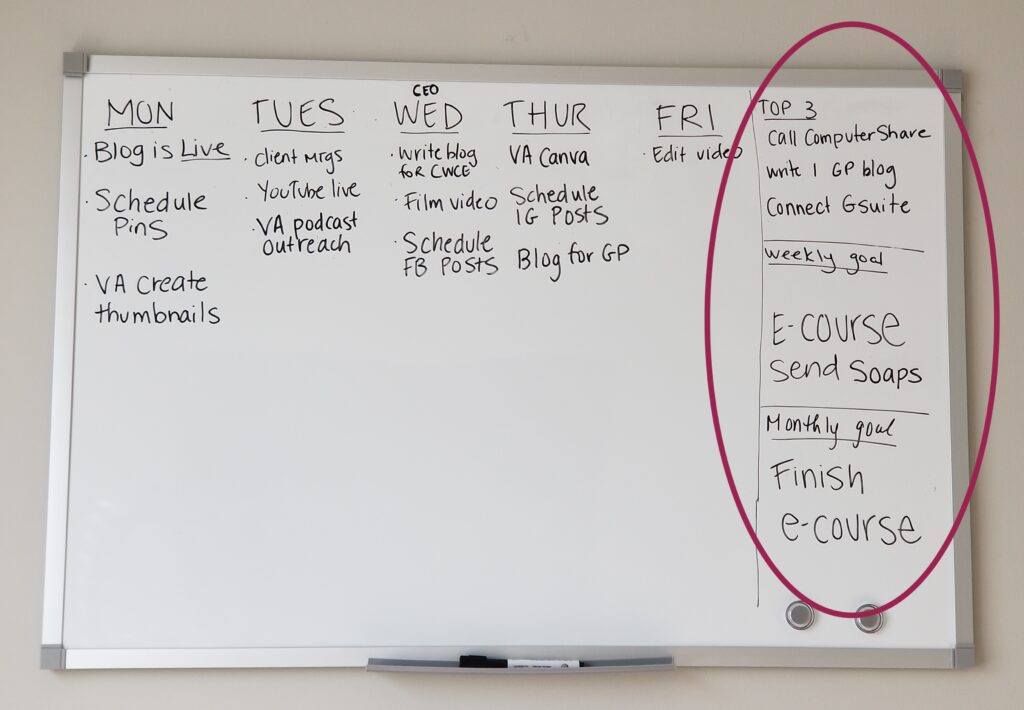 MON
· Blog is Live
· Schedule
Pins
· VA Create
thumbnails
TUES
· Client Mtgs
· YouTube live
· VA podcast
outreach
CEO
WED
· Write blog
for CWCE
· Film video
· Schedule
FB Posts
THUR
VA Canva
Schedule
IG Posts
Blog for GP
FRI
· Edit video
TOP 3
Call ComputerShare
Write 1 GP blog
Connect Gsuite
Weekly goal
E-course
Send Soaps
Monthly goal
Finish
e-course